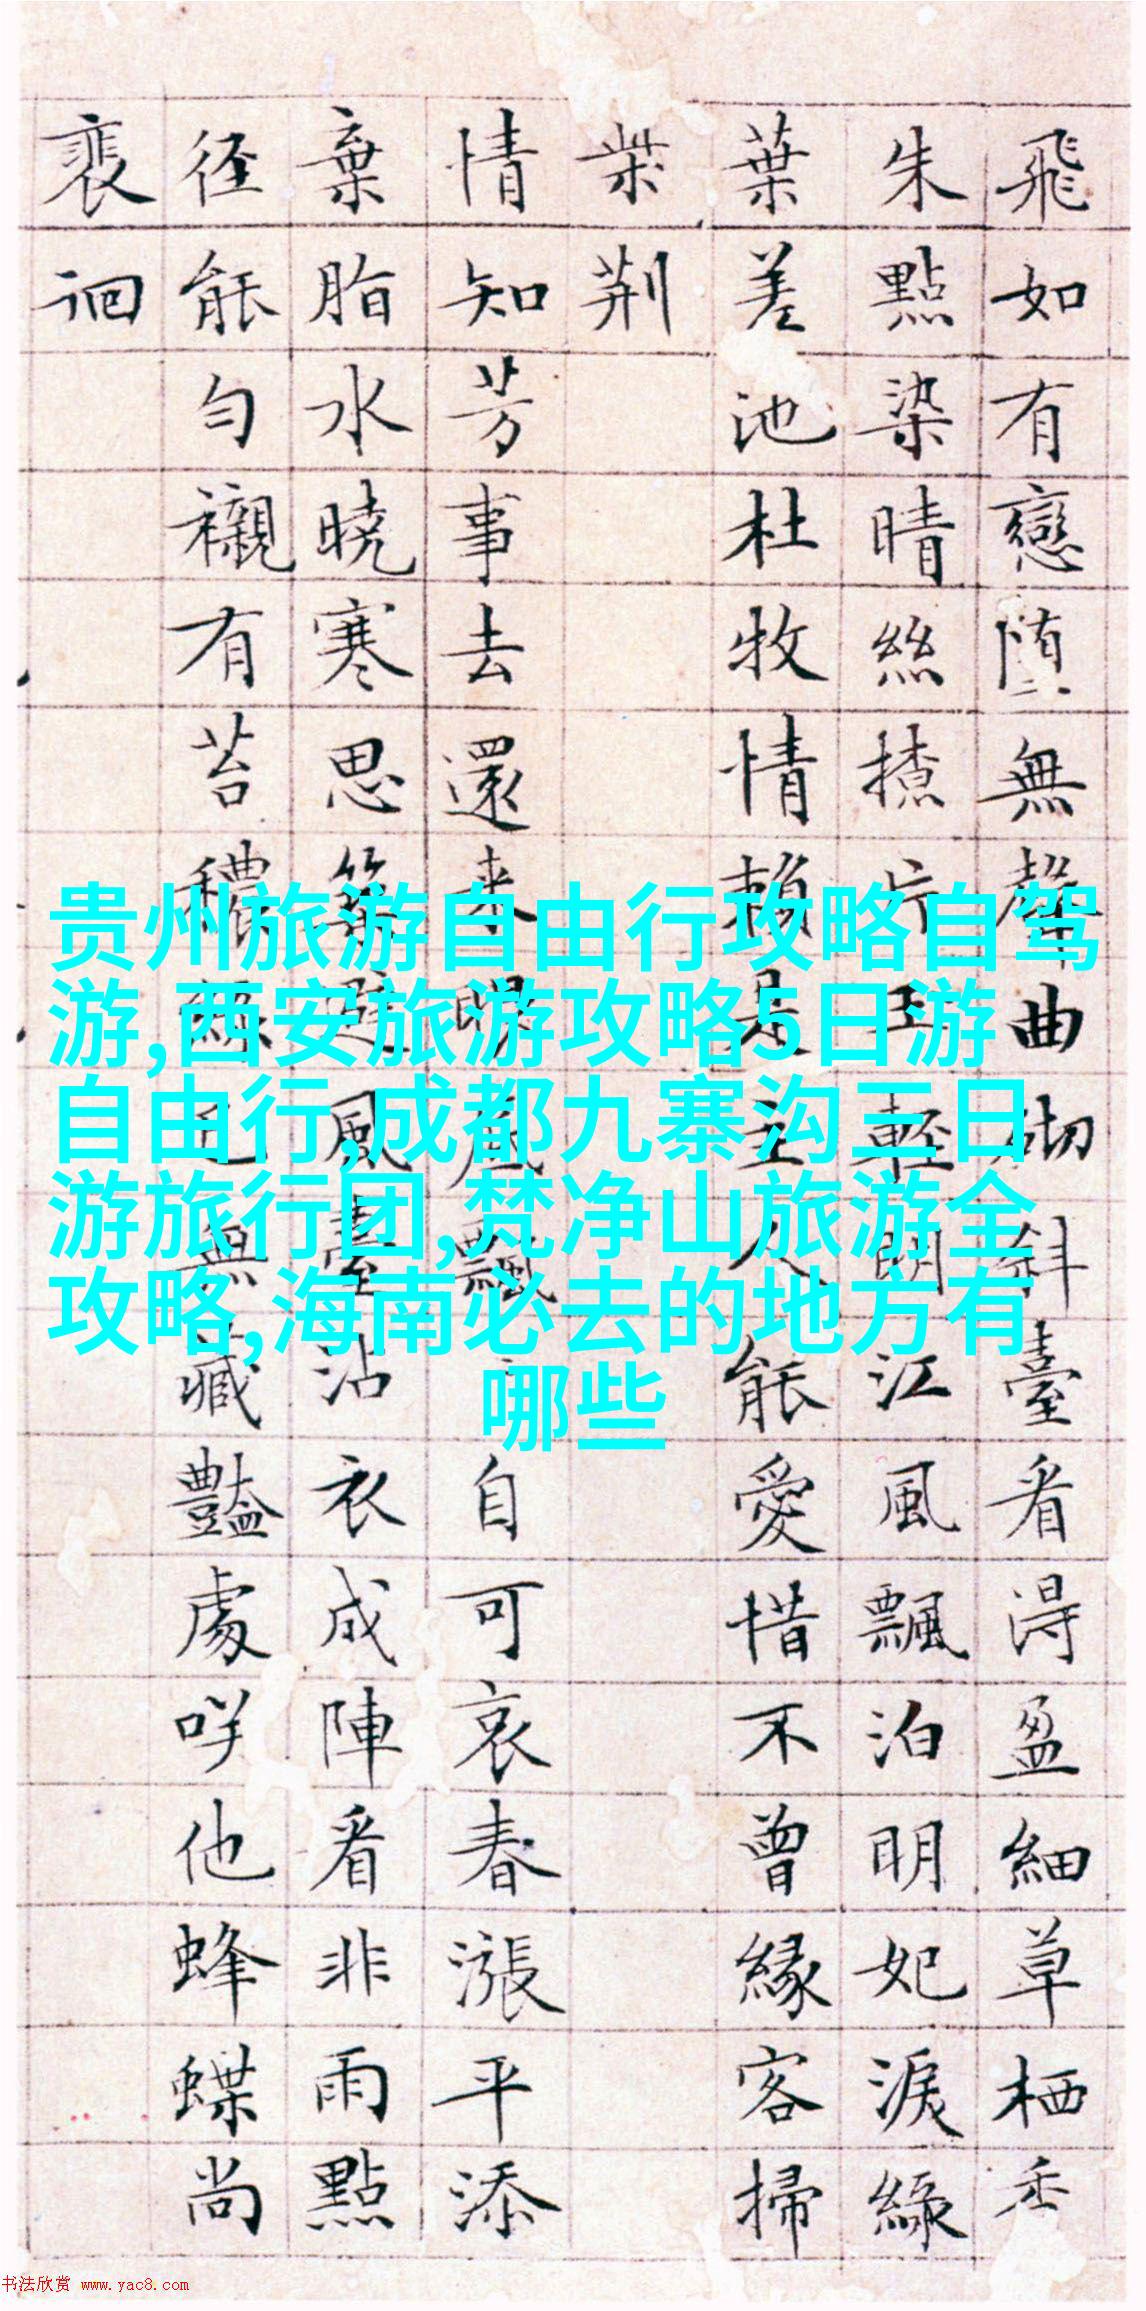 飛如有戀堕無聲曲砌斜臺看得盈細草栖香
朱點染晴絲撩片玉輕明江風飄泊明妃淚綠
葉差池杜牧情賴是主人能愛惜不曾緣客掃
柴荆
情知芳事去還来眼底飄自可哀春漲平添
棄脂水曉寒思築避風臺沾衣成陣看非雨點
径能勻襯有苔穠綠已無藏豔處咲他蜂蝶尚
裵徊
贵州旅游自由行攻略自驾
游,西安旅游攻略5日游
自由行,成都九寨沟三日
游旅行团,梵净山旅游全
攻略,海南必去的地方有
哪些
书法欣赏 www.yac8.com